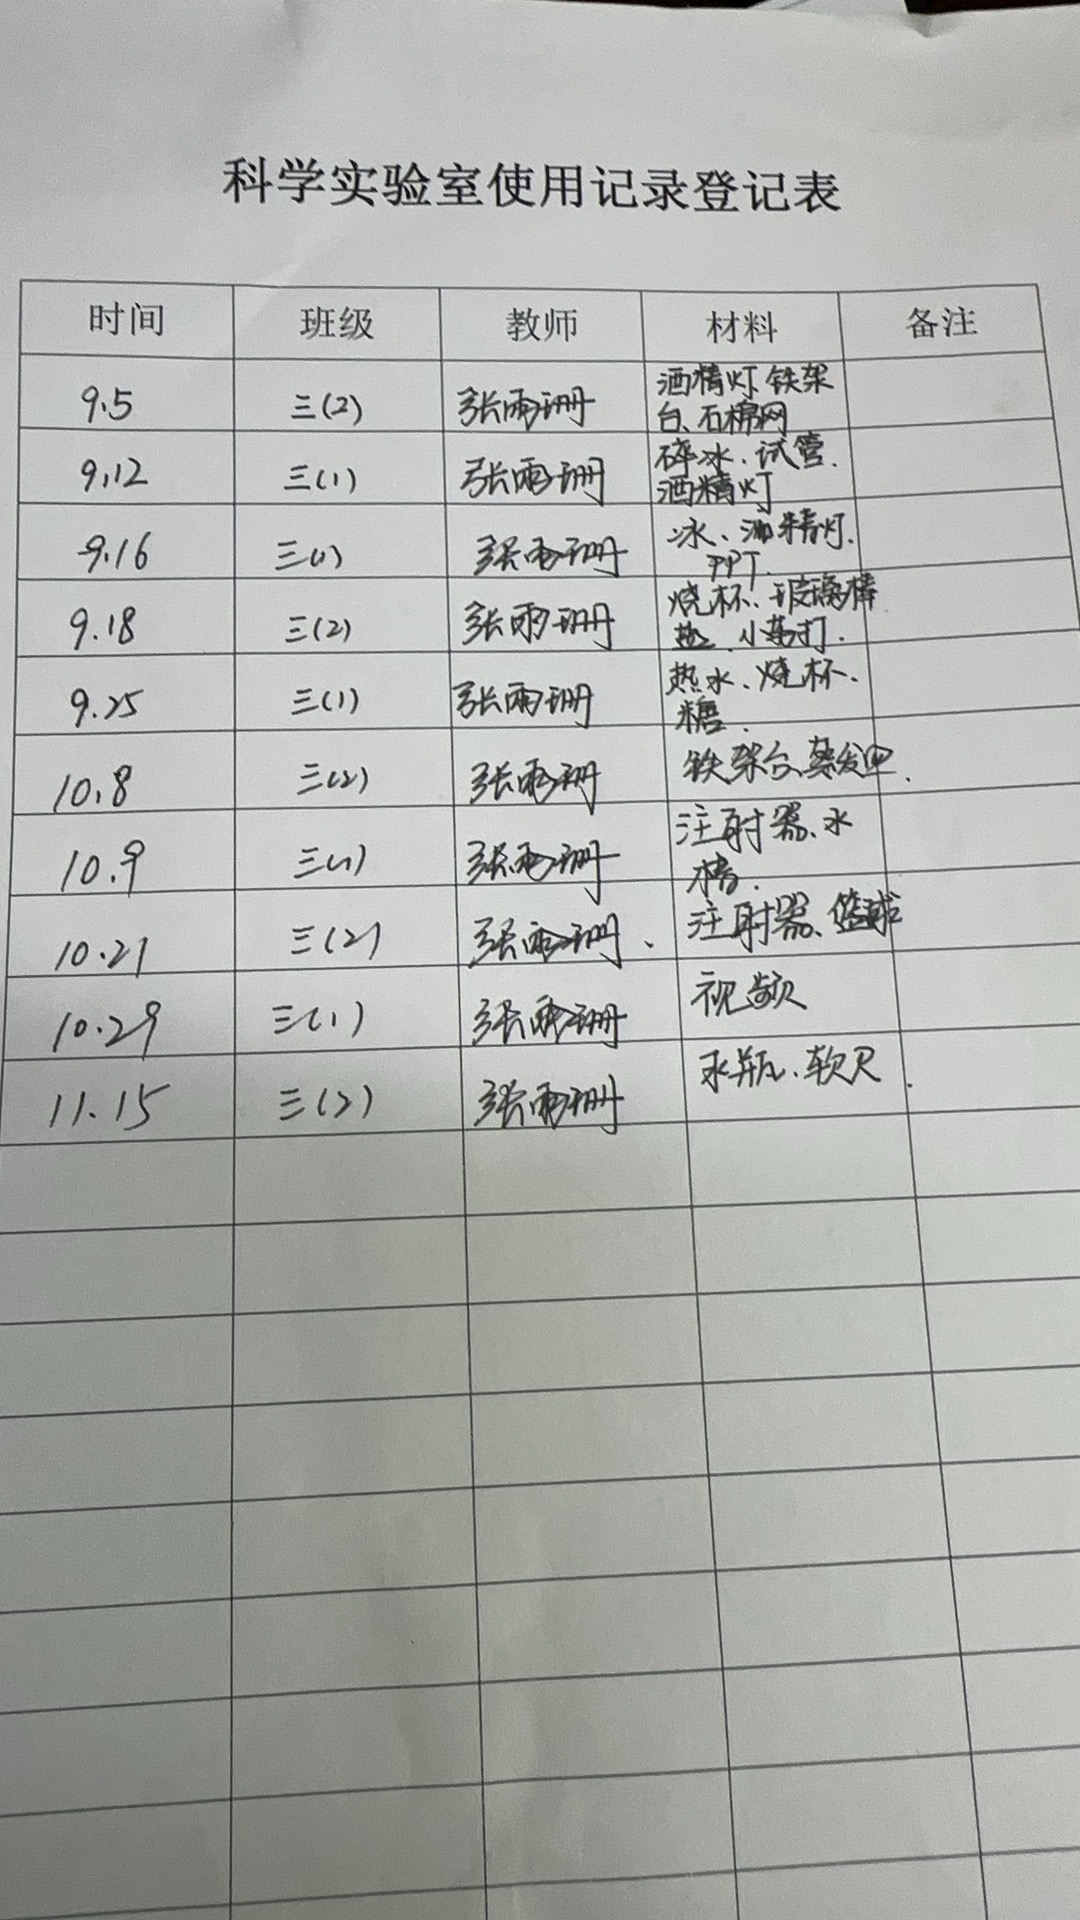 科学实验室使用记录登记表
时间 班级 教师 材料 备注
9.5 三(2) 张雨珊 酒精灯 铁架
台、石棉网
9.12 三(1) 张雨珊 碎冰、试管、
酒精灯
9.16 三(1) 张雨珊 冰、酒精灯、
PPT
9.18 三(2) 张雨珊 烧杯、玻璃棒
盐、小苏打.
9.25 三(1) 张雨珊 热水、烧杯、
糖.
10.8 三(2) 张雨珊 铁架台、蒸发皿.
10.9 三(1) 张雨珊 注射器、水
槽.
10.21 三(2) 张雨珊、 注射器、篮球
10.29 三(1) 张雨珊 视频
11.15 三(2) 张雨珊 水瓶、软尺.